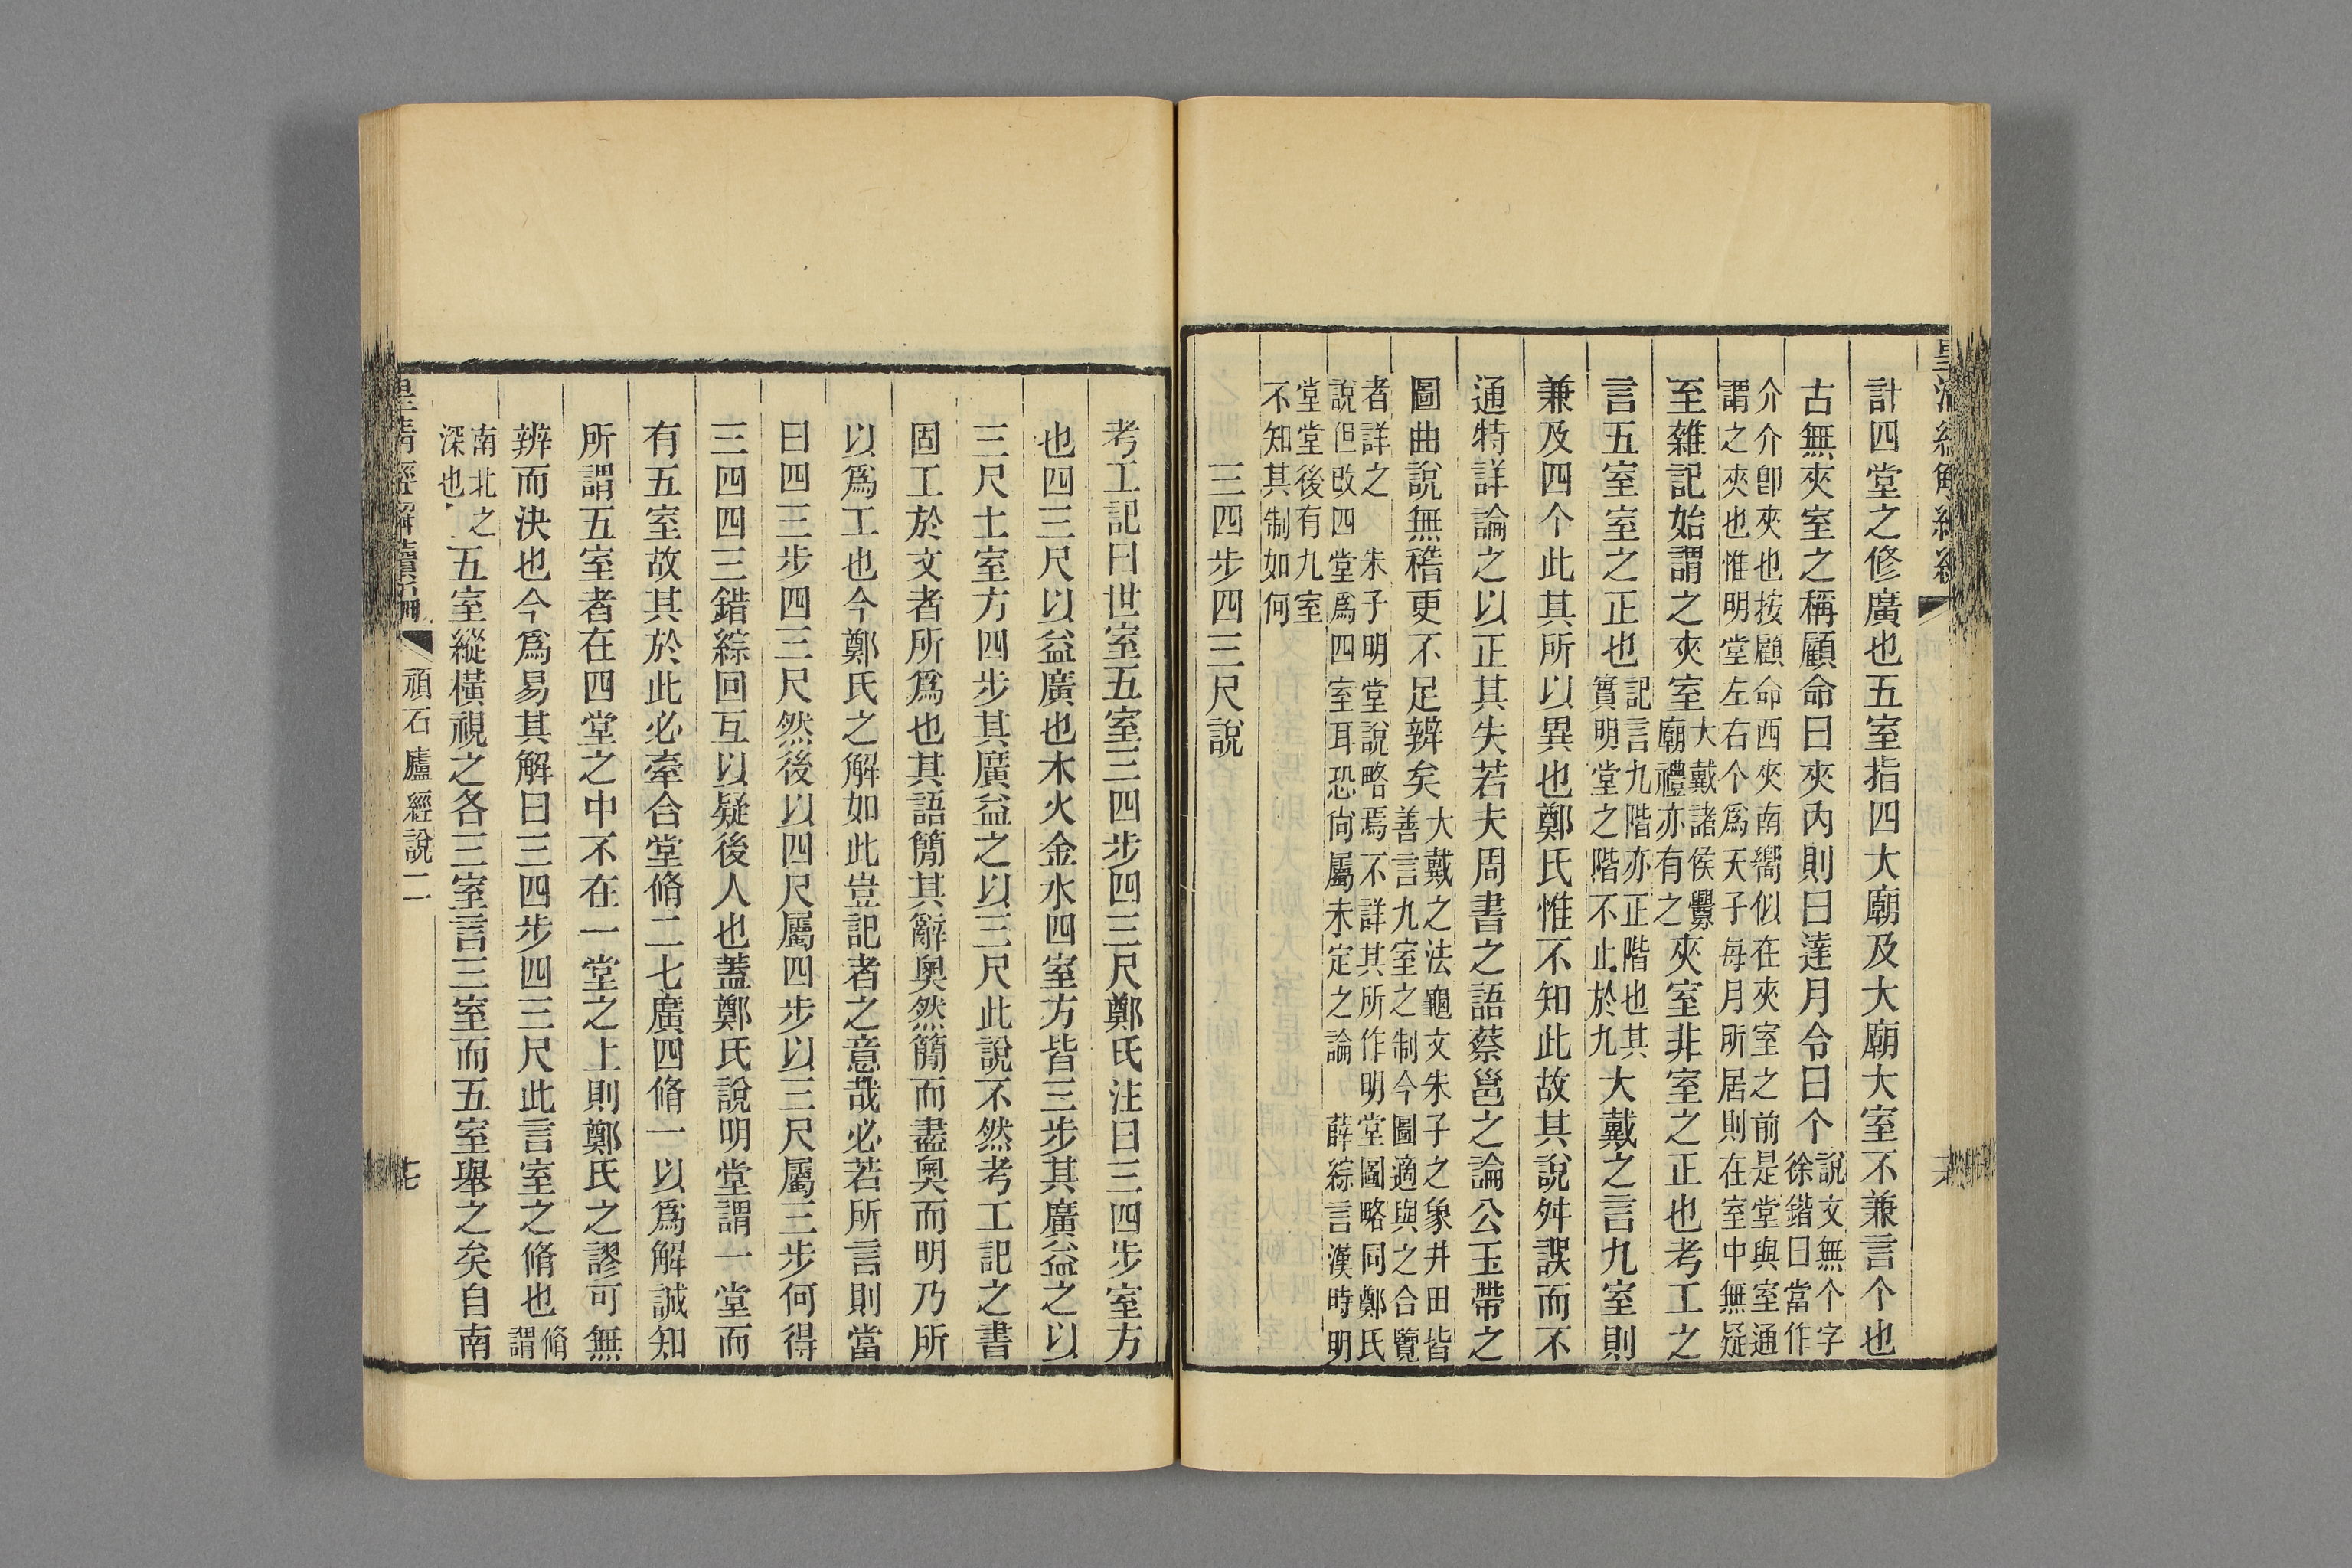 皇清經解續編
計四堂之修廣也五室指四大廟及大廟大室不兼言个也
古無夾室之稱顧命曰夾內則曰達月令曰个說文無个字
徐鍇曰當作
介介卽夾也按顧命西夾南嚮似在夾室之前是堂與室通
謂之夾也惟明堂左右个爲天子每月所居則在室中無疑
至雜記始謂之夾室大戴諸侯釁
廟禮亦有之夾室非室之正也考工之
言五室室之正也記言九階亦正階也其
實明堂之階不止於九大戴之言九室則
兼及四个此其所以異也鄭氏惟不知此故其說舛誤而不
通特詳論之以正其失若夫周書之語蔡邕之論公玉帶之
圖曲說無稽更不足辨矣大戴之法龜文朱子之象井田皆
善言九室之制今圖適與之合覽
者詳之 朱子明堂說略焉不詳其所作明堂圖略同鄭氏
說但改四堂爲四室耳恐尙屬未定之論 薛綜言漢時明
堂堂後有九室
不知其制如何
三四步四三尺說
考工記曰世室五室三四步四三尺鄭氏注曰三四步室方
也四三尺以益廣也木火金水四室方皆三步其廣益之以
三尺土室方四步其廣益之以三尺此說不然考工記之書
固工於文者所爲也其語簡其辭奧然簡而盡奧而明乃所
以爲工也今鄭氏之解如此豈記者之意哉必若所言則當
曰四三步四三尺然後以四尺屬四步以三尺屬三步何得
三四四三錯綜回互以疑後人也蓋鄭氏說明堂謂一堂而
有五室故其於此必牽合堂脩二七廣四脩一以爲解誠知
所謂五室者在四堂之中不在一堂之上則鄭氏之謬可無
辨而決也今爲易其解曰三四步四三尺此言室之脩也脩
謂
南北之
深也五室縱橫視之各三室言三室而五室舉之矣自南
皇清經解續編
頑石廬經說二
七